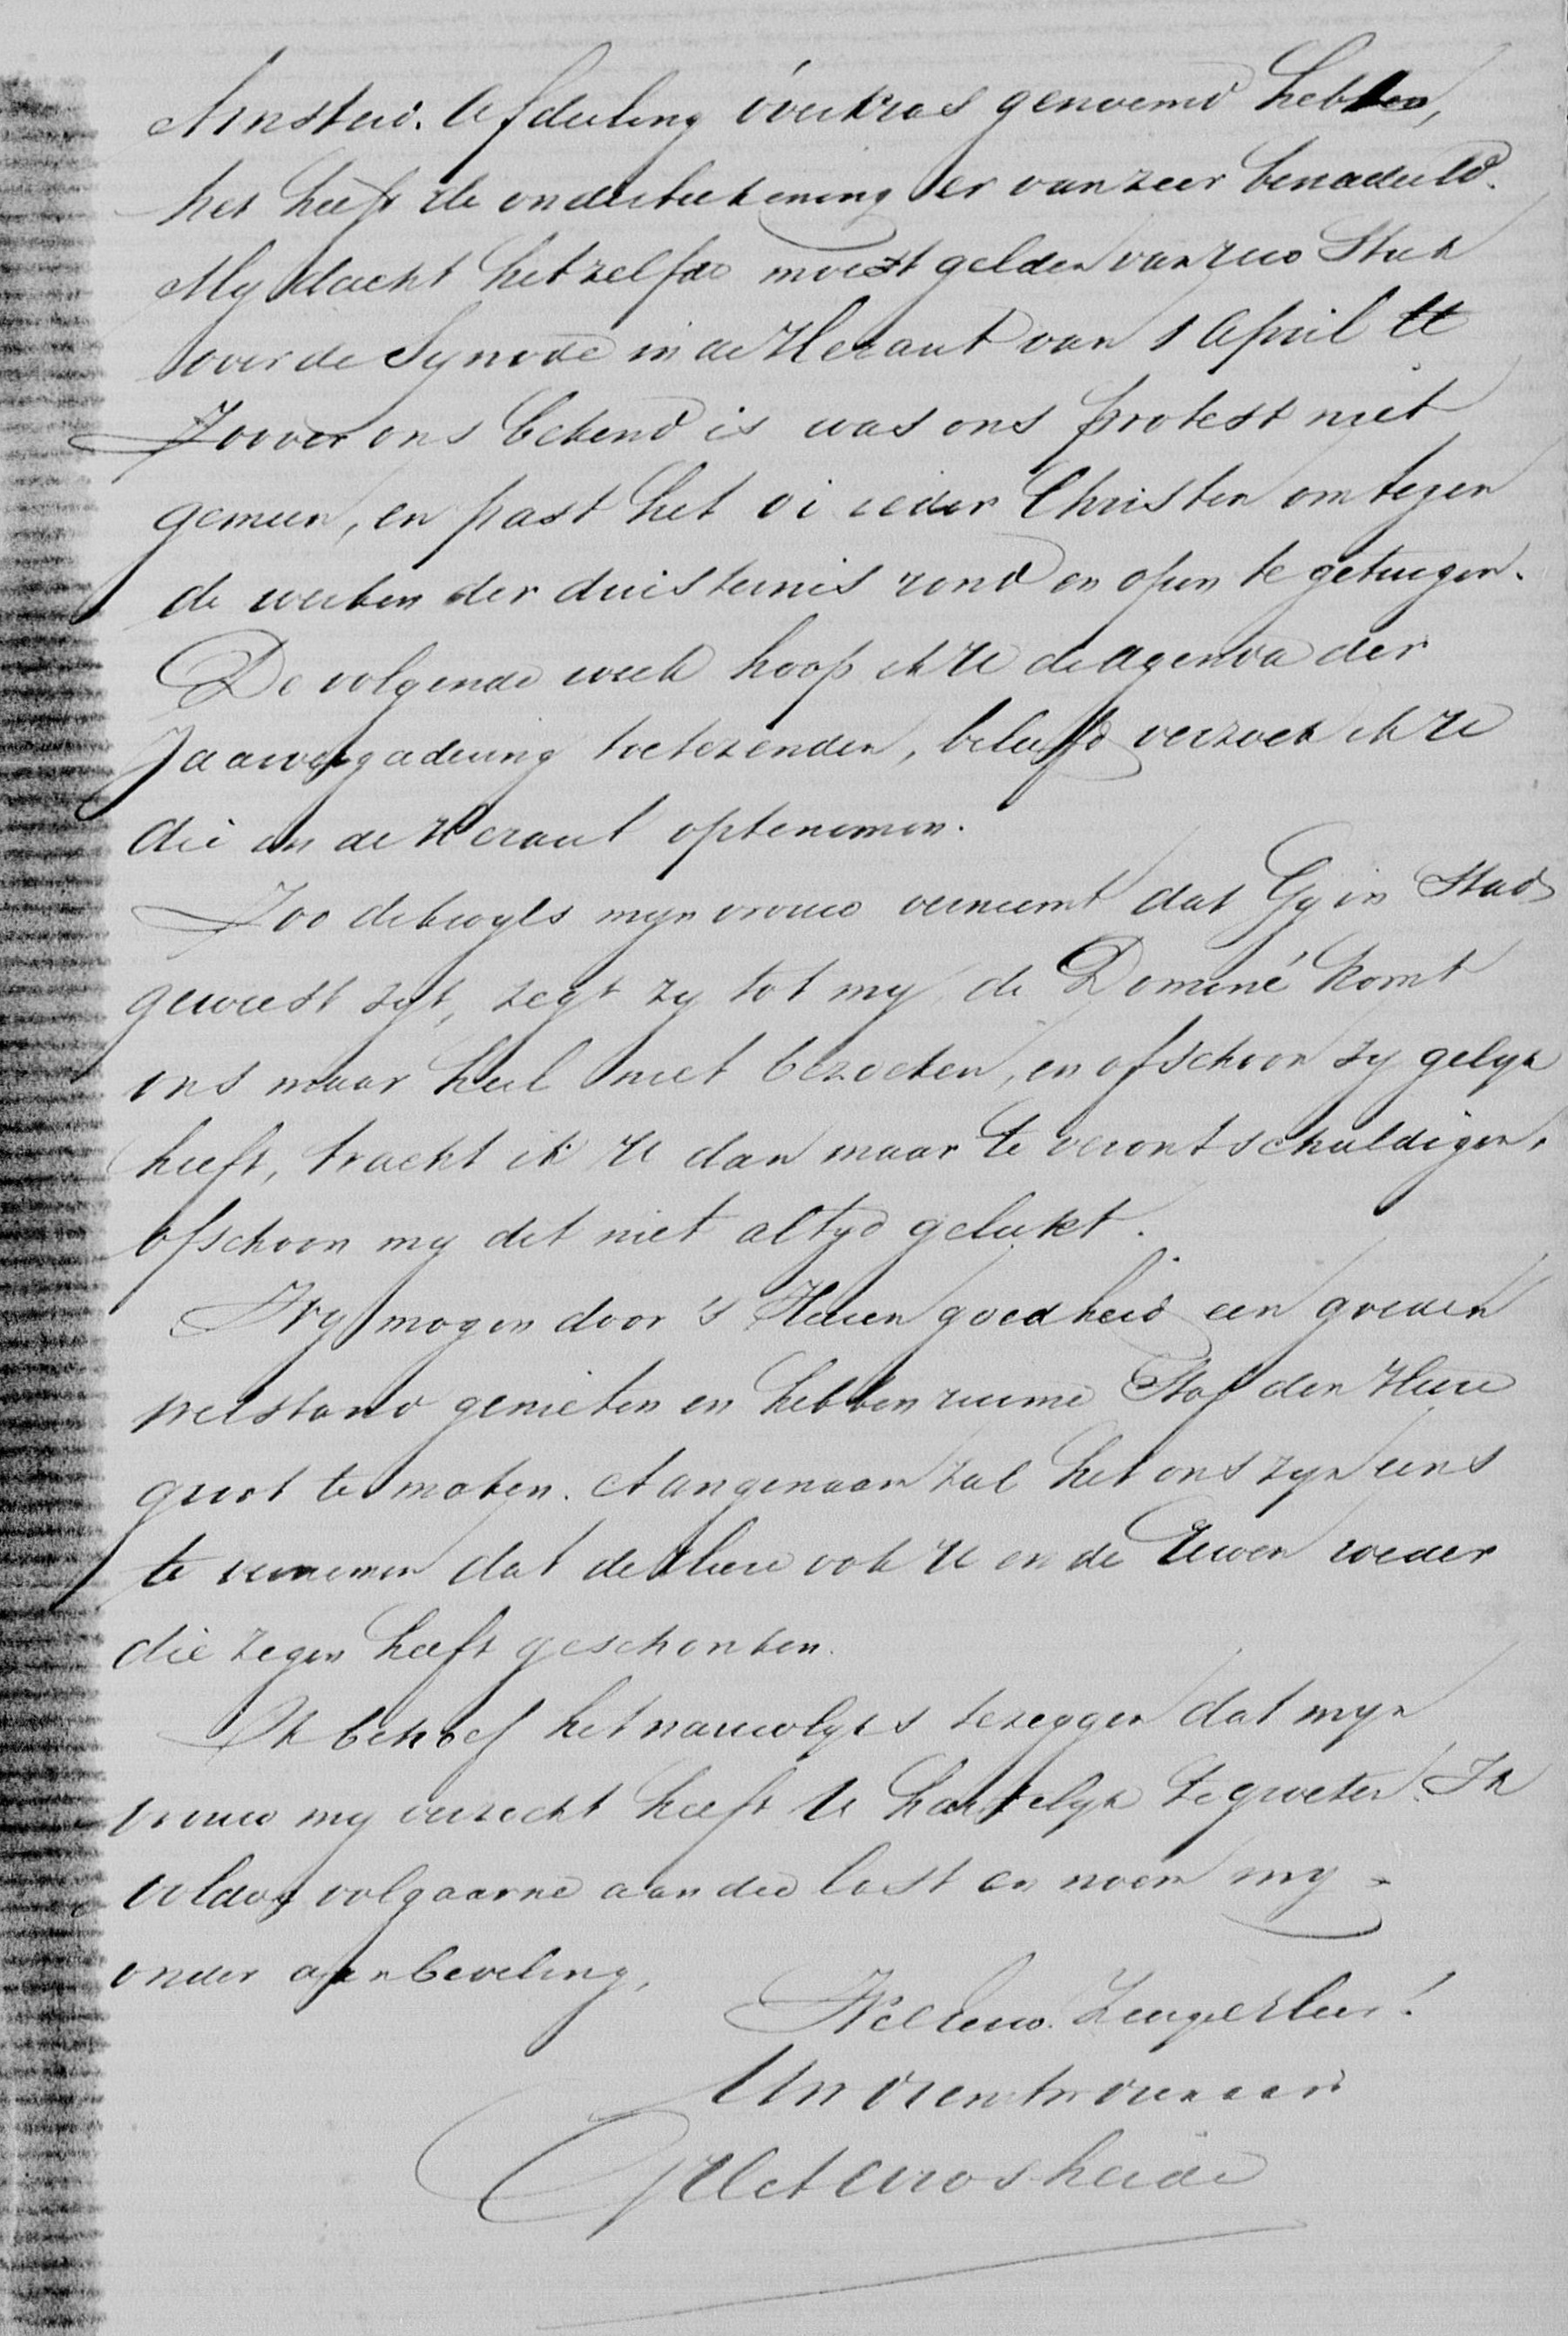 Amsterd. Afdeeling overkras genoemd hebben,
het heeft de onderteekening er van zeer benadeeld.
My dacht hetzelfde moest gelden van uw Stuk
over de Synode in de Heraut van 1 April ll
Zoover ons bekend is was ons protest niet
gemeen, en past het ieder Christen om tegen
de werken der duisternis rond en open te getuigen.
De volgende week hoop ik U de agenda der
Jaarvergadering toetezenden, beleefd verzoek ik U
die in de Heraut optenemen.
Zoo dikwyls myn vrouw verneemt dat Gy in Stad
geweest zyt, zegt zy tot my de Dominé komt
ons maar heel niet bezoeken, en ofschoon zy gelyk
heeft, tracht ik U dan maar te verontschuldigen,
ofschoon my dit niet altyd gelukt.
Wy mogen door 's Heeren goedheid een goeden
welstand genieten en hebben ruime Stof den Heere
groot te maken. Aangenaam zal het ons zyn eens
te vernemen dat de Heere ook U en de Uwen weder
die zegen heeft geschonken.
Ik behoef het nauwlyks te zeggen dat myn
vrouw my verzocht heeft U hartelyk te groeten. Ik
voldoe volgaarne aan die last en noem my
onder aanbeveling,
WelEerw. Zeergel. Heer!
Uw vriend en dienaar
Grosheide